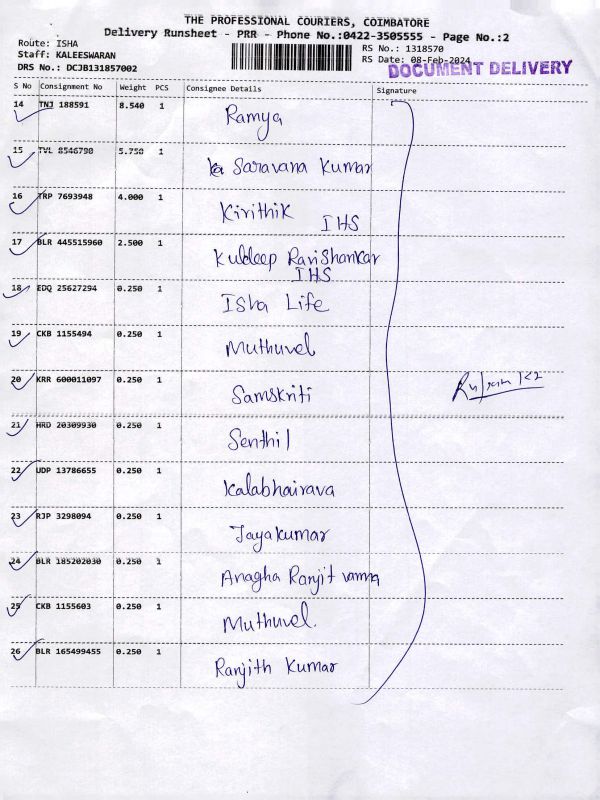 THE PROFESSIONAL COURIERS, COIMBATORE
Delivery Runsheet - PRR - Phone No.:0422-3505555 - Page No.:2
Route: ISHA
Staff: KALEESWARAN
DRS No.: DCJB131857002
RS No.: 1318570
RS Date: 08-Feb-2024
DOCUMENT DELIVERY
S No Consignment No Weight PCS Consignee Details Signature
14 TNJ 188591 8.540 1 Ramya
15 TVL 8546790 5.750 1 Saravana Kumar
16 TRP 7693948 4.000 1 Kirithik
IHS
17 BLR 445515960 2.500 1 Kuldeep Ravishankar
IHS
18 EDQ 25627294 0.250 1 Isha Life
19 CKB 1155494 0.250 1 Muthuvel
20 KRR 600011097 0.250 1 Samskriti
21 HRD 20309930 0.250 1 Senthil
22 UDP 13786655 0.250 1 Kalabhairava
23 RJP 3298094 0.250 1 Jayakumar
24 BLR 185202030 0.250 1 Anagha Ranjit varma
25 CKB 1155603 0.250 1 Muthuvel.
26 BLR 165499455 0.250 1 Ranjith Kumar